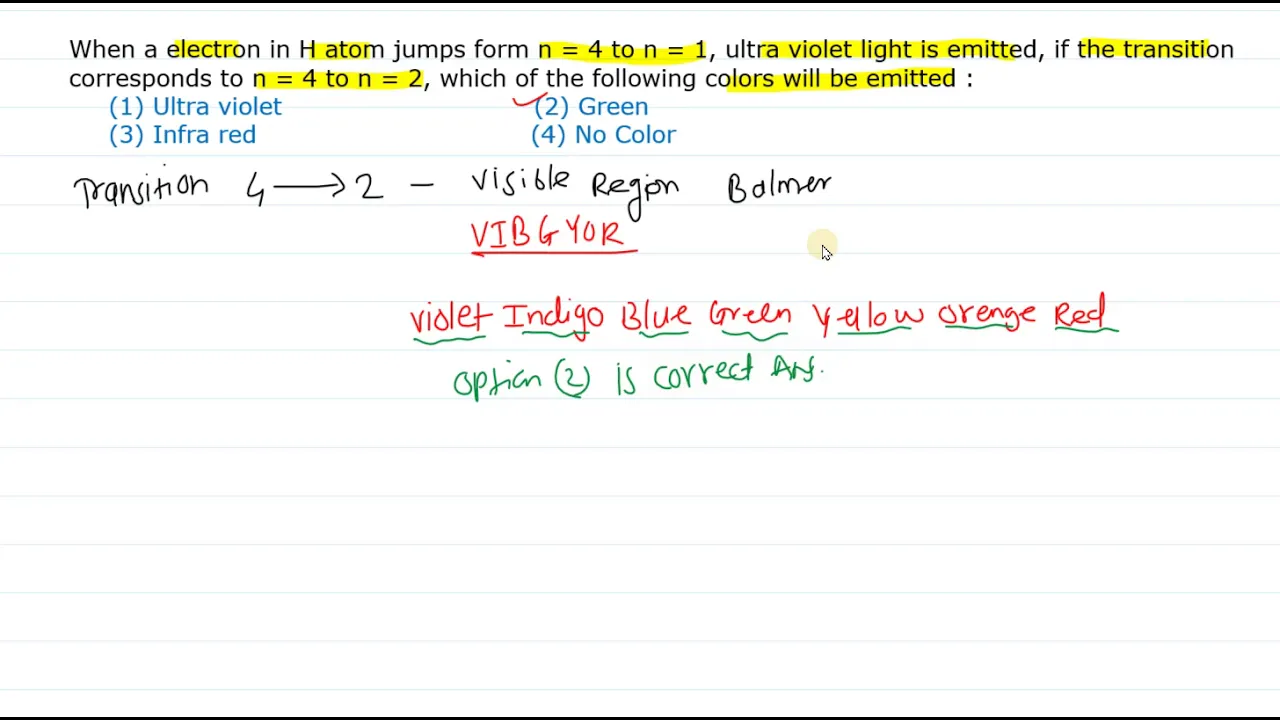 When a electron in H atom jumps form n = 4 to n = 1, ultra violet light is emitted, if the transition
corresponds to n = 4 to n = 2, which of the following colors will be emitted :
(1) Ultra violet (2) Green
(3) Infra red (4) No Color
Transition 4 → 2 - Visible Region Balmer
VIBGYOR
violet Indigo Blue Green Yellow orenge Red
option (2) is correct Ans.